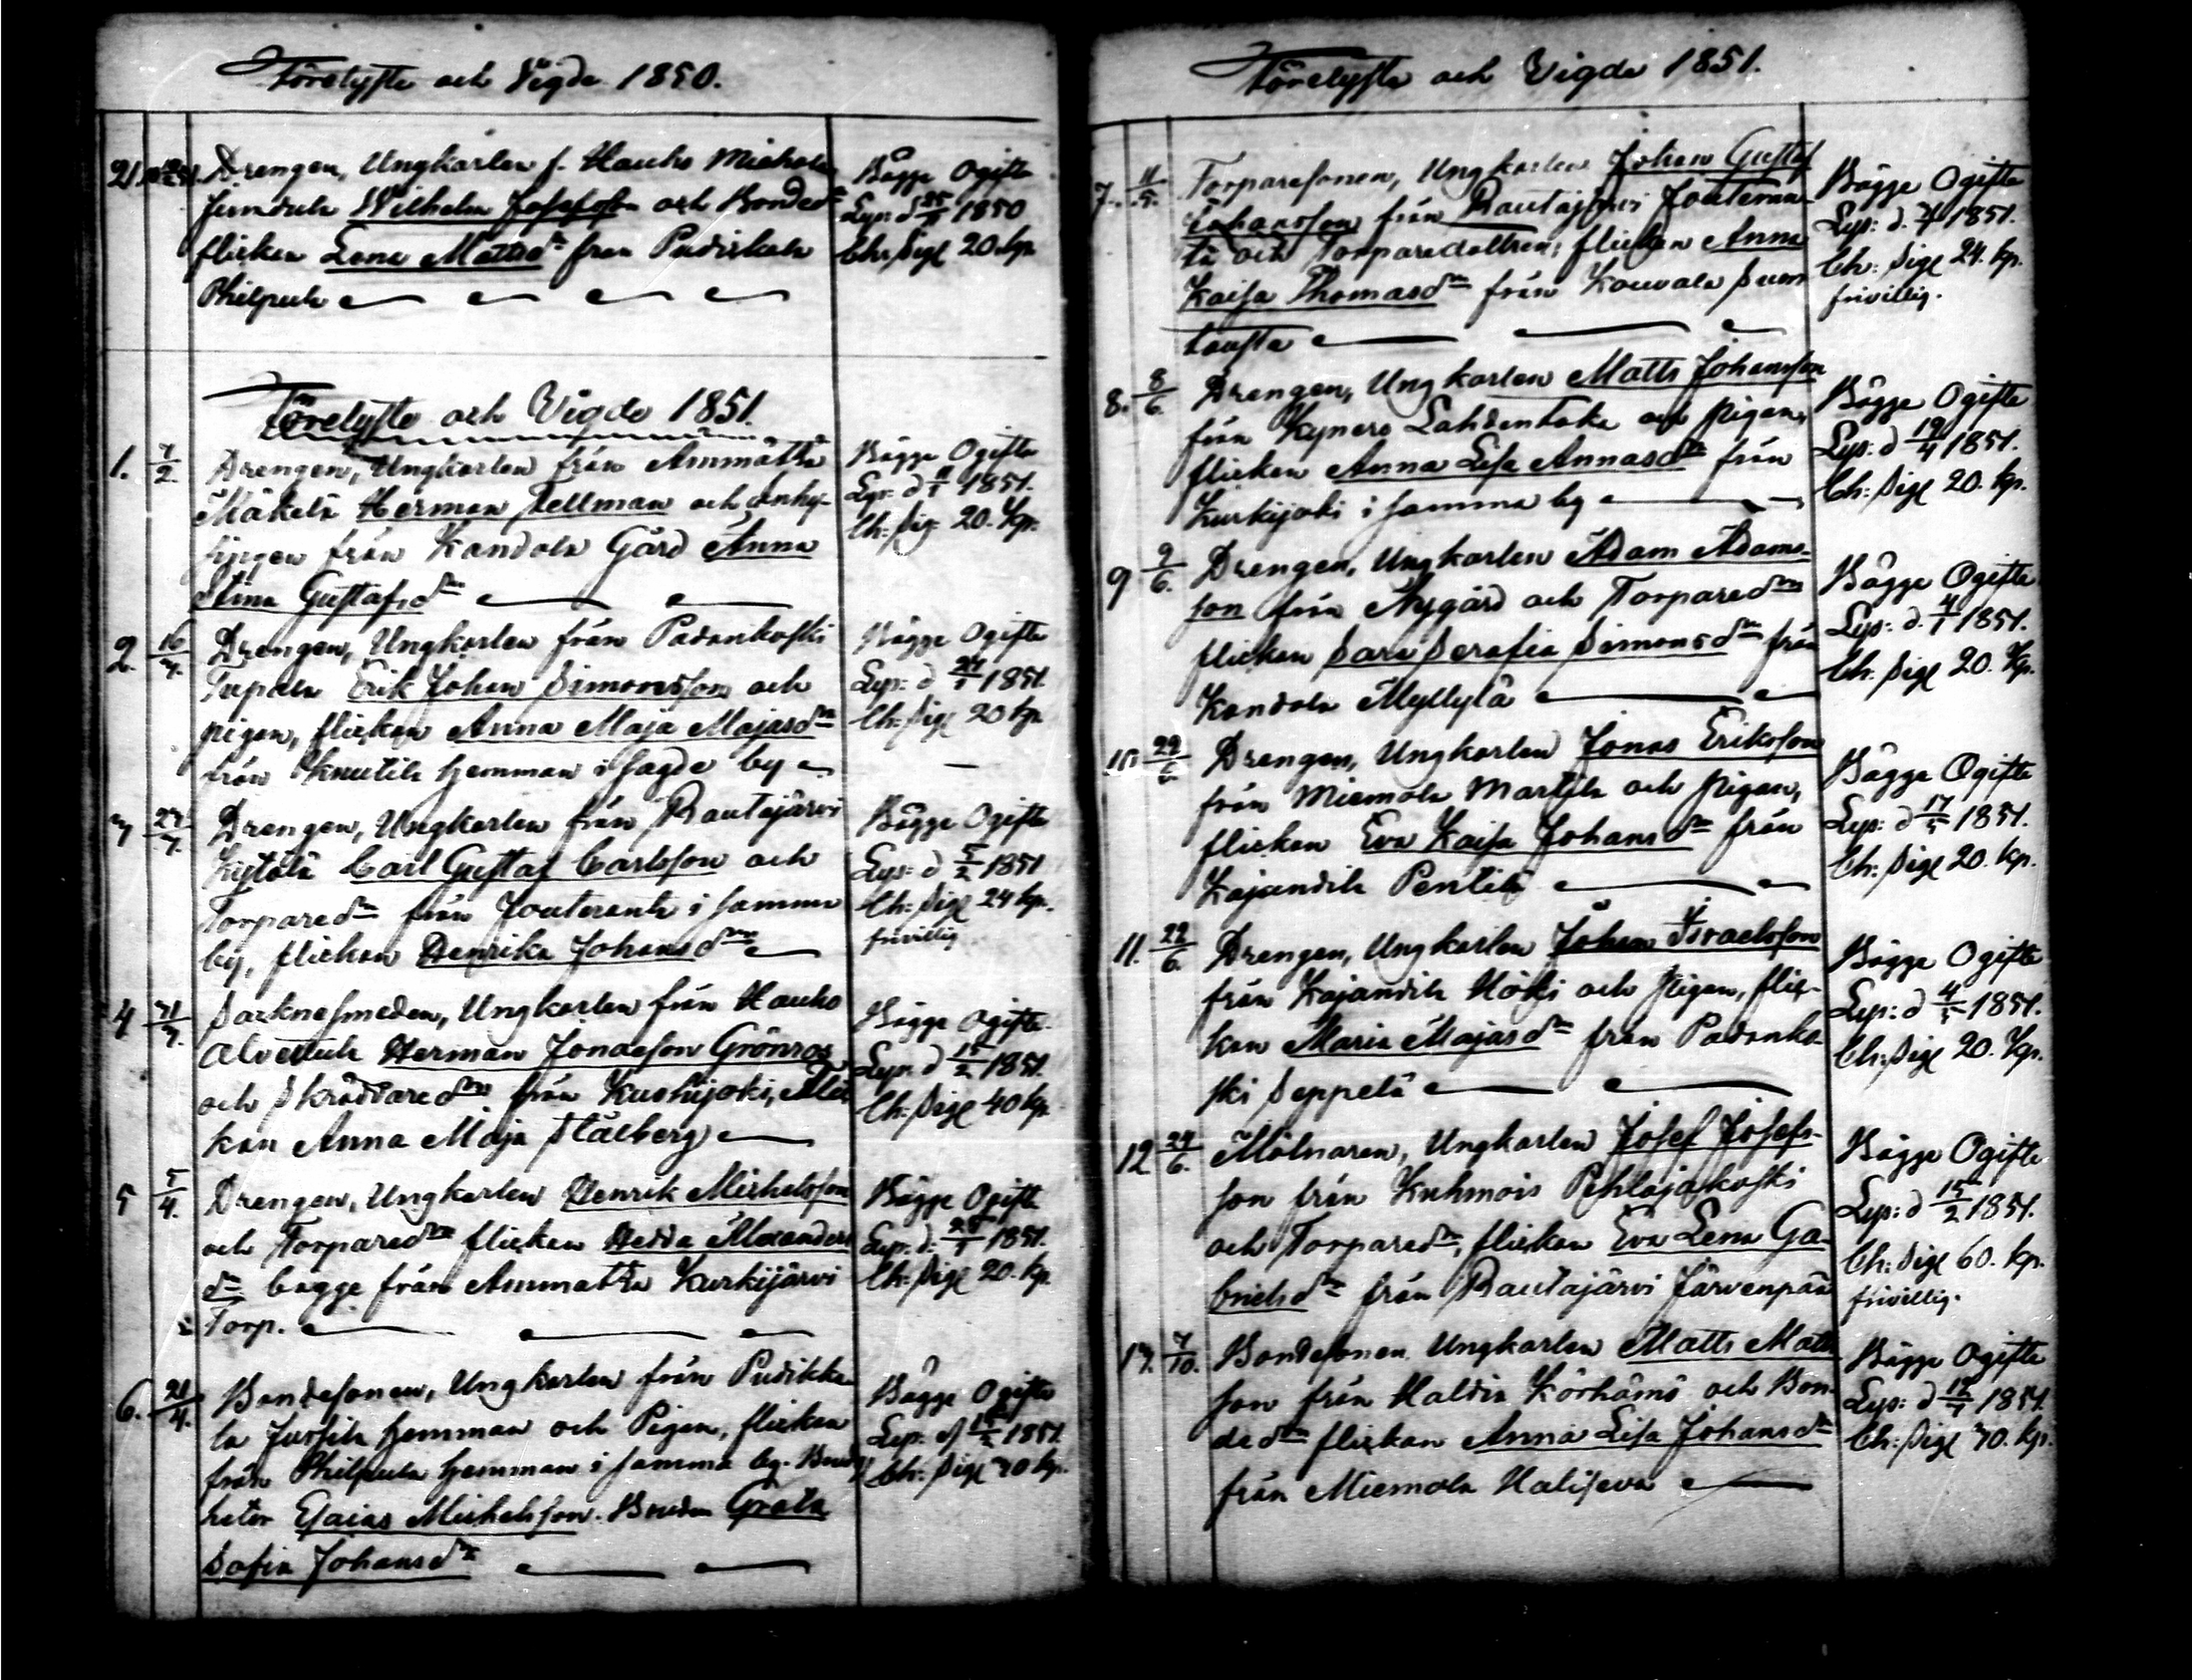 Förelyfte och Vigde 1850.
21. Drengen, Ungkarlen f. Hauho
Wilhelm Josefsson och Bonded:n
flickan Lena Mattsd:r från
Philpula
Bägge Ogifte
Lys: d 1850
Ch: Sigl 20 kp.
Förelyfte och Vigde 1851.
1. 7/2. Drengen, Ungkarlen från Ammättä
Mäkelä Herman Tellman och inhy-
singen från Kandola Gård Anna
Stina Gustafsd:r
Bägge Ogifte
Lys: d 1851.
Ch: Sig 20. Kp.
2. Drengen, Ungkarlen från Padankoski
Erik Johan Simonsson och
pigan, flickan Anna Maja Majasd:r
från Knutila hemman i sagde by
Bägge Ogifte
Lys: d 1851.
Ch: Sigl 20 kp
Drengen, Ungkarlen från Rautajärvi
Kytölä Carl Gustaf Carlsson och
Torpared:r från i samma
by, flickan Henrika Johansd:r
Bägge Ogifte
Lys: d 5/2 1851
Ch: Sigl 24 kp.
frivillig
4 Socknesmeden, Ungkarlen från Hauho
Herman Jonasson Grönroos
och Skräddared:r från flic
kan Anna Maja Stålberg
Bägge Ogifte.
Lys: d 15/2 1851.
Ch: Sigl 40 kp
5 5/4. Drengen, Ungkarlen Henrik Michelsson
och Torpared:r flickan Hedda Alexanders
d:r bägge från Ammättä Kurkijärvi
Torp.
Bägge Ogifte
Lys: d. 1851.
Ch: Sigl 20. kp
6. 21/4. Bondesonen, Ungkarlen från Pudikka
la Jussila hemman och Pigan, flickan
från Philpula hemman i samma by.
Esaias Michelsson. Bruden Greta
Sofia Johansd:r
Bägge Ogifte
Lys: 1851.
Ch: Sigl kp.
Förelyfte och Vigde 1851.
7. 11/5. Torparesonen, Ungkarlen Johan Gustaf
Johansson från Rautajärvi
och Torparedottren, flickan Anna
Kaisa Thomasd:r från Kouvala
tausta
Bägge Ogifte
Lys: d. 1851.
Ch: Sigl 24. kp.
frivillig.
8. 8/6. Drengen, Ungkarlen Matts Johansson
från Kyynärö Lahdentaka och pigan,
flickan Anna Lisa Annasd:r från
Kurkijoki i samma by
Bägge Ogifte
Lys: d 19/4 1851.
Ch: Sigl 20. kp.
9 9/6. Drengen, Ungkarlen Adam Adams-
son från Nygård och Torpared:r
flickan Sara Serafia Simonsd:r från
Kandola Myllylä
Bägge Ogifte
Lys: d. 1851.
Ch: Sigl 20. Kp.
10 22/6. Drengen, Ungkarlen Jonas Eriksson
från Miemola Marttila och pigan,
flickan Eva Kaisa Johansd:r från
Kajandila Pentilä
Bägge Ogifte
Lys: d 17/5 1851.
Ch: Sigl 20. kp.
11. 22/6. Drengen, Ungkarlen Johan Israelsson
från Kajandila Höki och pigan, flic-
kan Maria Majasd:r från Padanko-
ski Seppelä
Bägge Ogifte
Lys: d 4/5 1851.
Ch: Sigl 20. Kp.
12 24/6. Mölnaren, Ungkarlen Josef Josefs-
son från Kuhmois Pehlajakoski
och Torpared:r, flickan Eva Lena Ga-
brielsd:r från Rautajärvi Järvenpää
Bägge Ogifte
Lys: d 15/2 1851.
Ch: Sigl 60. kp.
frivillig.
13. 7/10. Bondesonen Ungkarlen Matts Matts
son från Haldia Körhämö och Bon-
ded:r flickan Anna Lisa Johansd:r
från Miemola
Bägge Ogifte
Lys: d 1851.
Ch: Sigl kp.